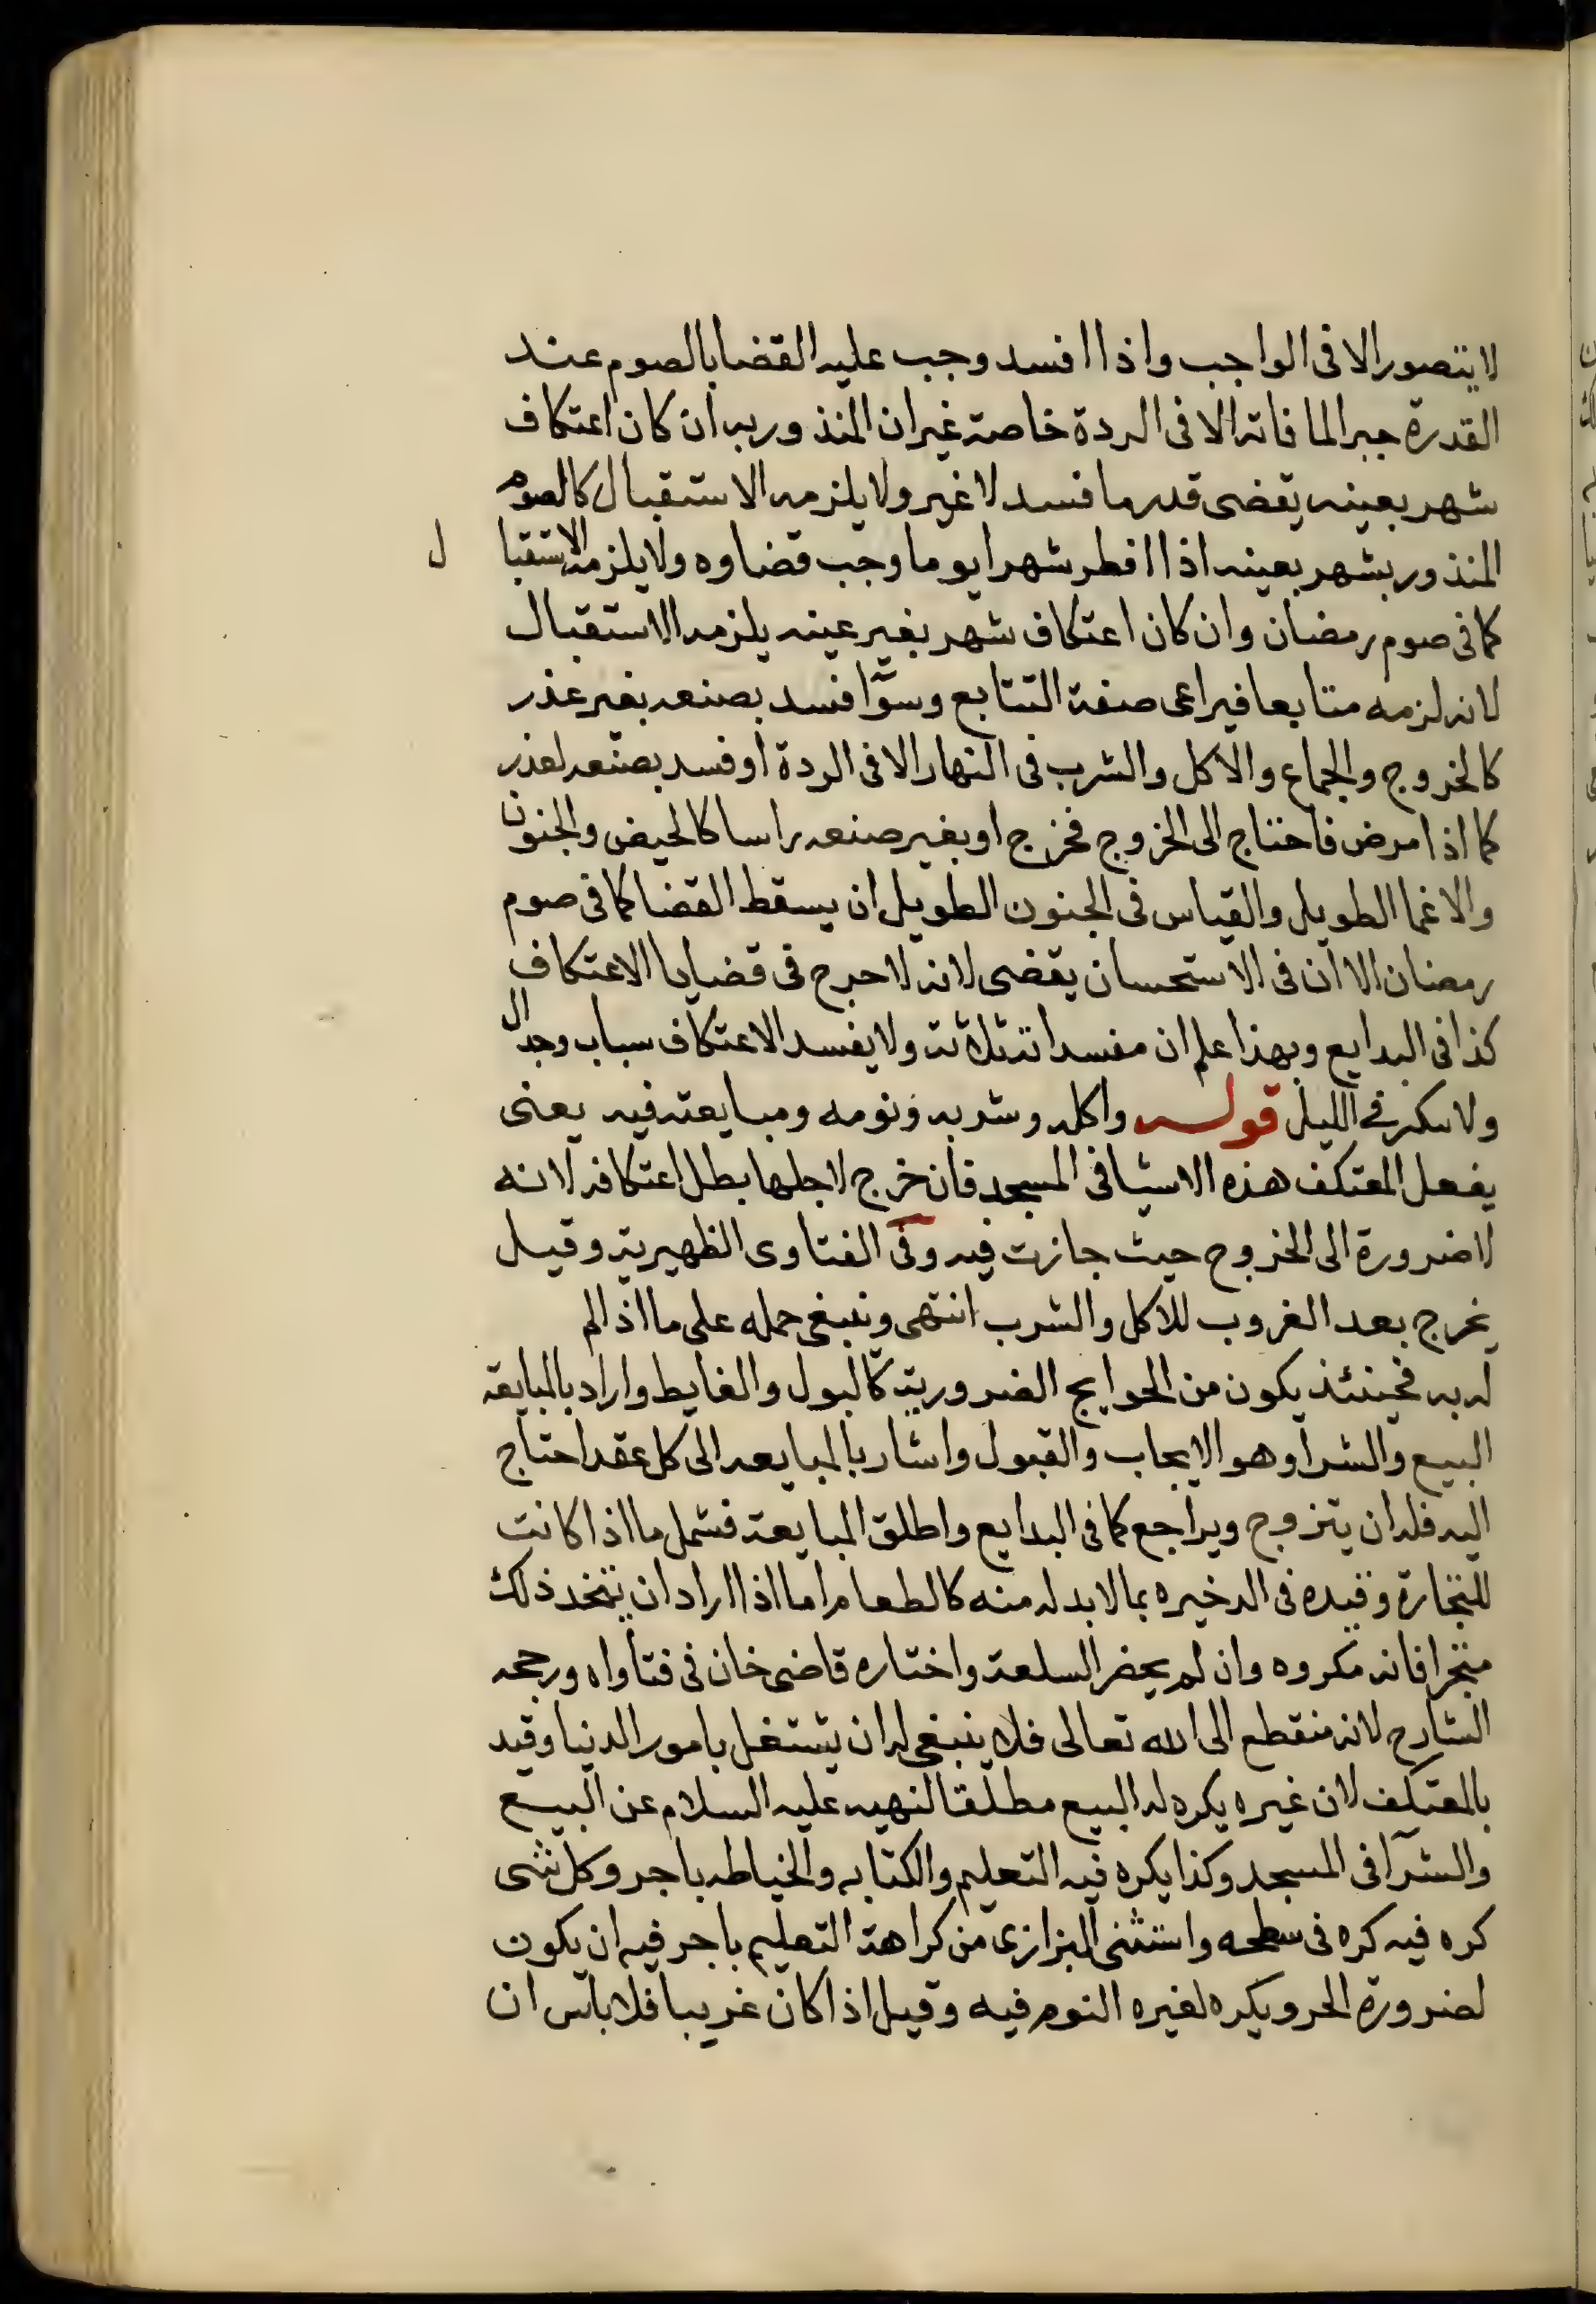 لا يتصور الا فى الواجب واذا افسد وجب عليه القضا بالصوم عند
القدرة جبرا لما فاته الا فى الردة خاصة غير ان المنذور به ان كان اعتكاف
شهر بعينه يقضى قدر ما فسد لا غير ولا يلزمه الاستقبال كالصوم
المنذور بشهر بعينه اذا افطر شهرا يوما وجب قضاوه ولا يلزمه الاستقبا ل
كما فى صوم رمضان وان كان اعتكاف شهر بغير عينه يلزمه الاستقبال
لانه لزمه متتابعا فيراعى صفة التتابع وسوآ افسد بصنعه بغير عذر
كالخروج والجماع والاكل والشرب فى النهار الا فى الردة او فسد بصنعه لعذر
كما اذا مرض فاحتاج الى الخروج فخرج او بغير صنعه راسا كالحيض والجنون
والاغما الطويل والقياس فى الجنون الطويل ان يسقط القضا كما فى صوم
رمضان الا ان فى الاستحسان يقضى لانه لا حرج فى قضايا الاعتكاف
كذا فى البدايع وبهذا علم ان مفسداته ثلاثة ولا يفسد الاعتكاف سباب وجدال
ولا سكر فى الليل قوله واكله وشربه ونومه ومبايعته فيه يعنى
يفعل المعتكف هذه الاشيا فى المسجد فان خرج لاجلها بطل اعتكافه لانه
لا ضرورة الى الخروج حيث جازت فيه وفى الفتاوى الظهيرية وقيل
يخرج بعد الغروب للاكل والشرب انتهى وينبغى حمله على ما اذا لم
له به فحينئذ يكون من الحوايج الضرورية كالبول والغايط واراد بالمبايعة
البيع والشرا وهو الايجاب والقبول واشار بالمبايعه الى كل عقد احتاج
اليه فله ان يتزوج ويراجع كما فى البدايع واطلق المبايعة فشمل ما اذا كانت
للتجارة وقيده فى الدخيره بما لابد له منه كالطعام اما اذا اراد ان يتخد ذلك
متجرا فانه مكروه وان لم يحضر السلعة واختاره قاضى خان فى فتاواه ورجحه
الشارح لانه منقطع الى الله تعالى فلا ينبغى له ان يشتغل بامور الدنيا وقيد
بالمعتكف لان غيره يكره له البيع مطلقا لنهيه عليه السلام عن البيع
والشرآ فى المسجد وكذا يكره فيه التعليم والكتابه والخياطه باجر وكل شى
كره فيه كره فى سطحه واستثنى البزازى من كراهة التعليم باجر فيه ان يكون
لضرورة الحر ويكره لغيره النوم فيه وقيل اذا كان غريبا فلا باس ان